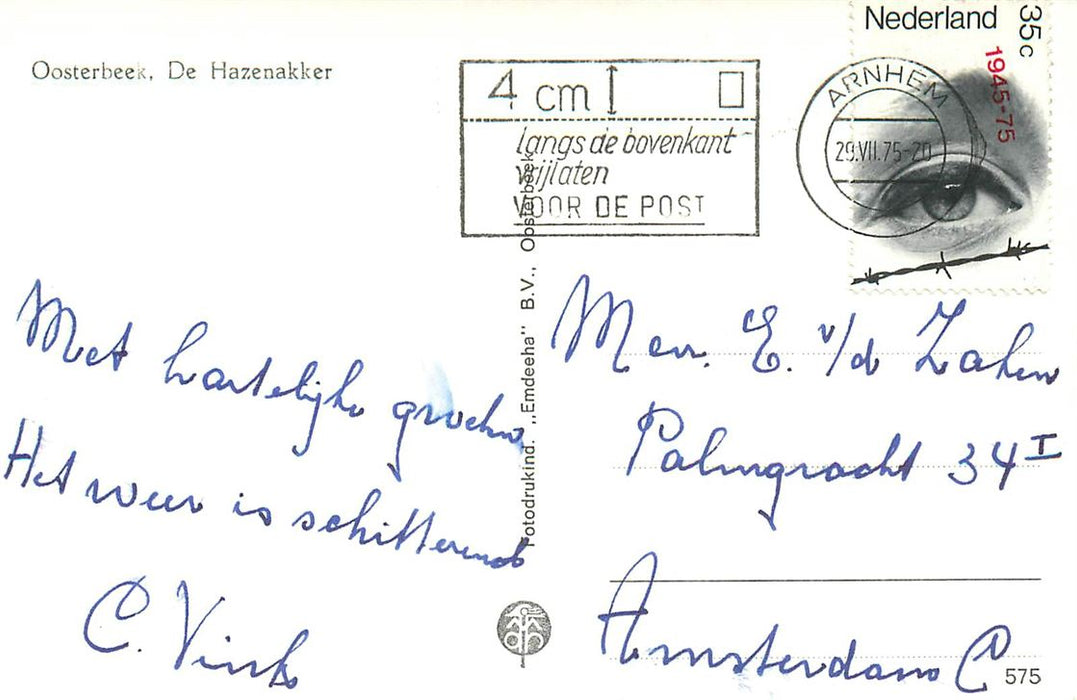 Oosterbeek, De Hazenakker
Nederland
35c
1945-75
ARNHEM
29.VII.75-20
4 cm
langs de bovenkant
vrijlaten
VOOR DE POST
Met hartelijke groeten,
Het weer is schitterend
C. Vink
Fotodrukind. „Emdeeha" B.V., Oosterbeek
Mevr. E. v/d Zahn
Palmgracht 34 I
Amsterdam C
575